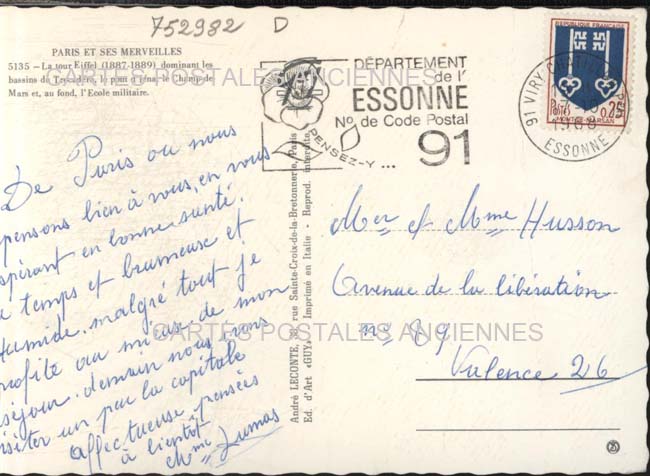 752982 D
PARIS ET SES MERVEILLES
5135 - La tour Eiffel (1887-1889) dominant les
bassins du Trocadéro, le pont d'Iéna, le Champ de
Mars et, au fond, l'Ecole militaire.
De Paris ou nous
pensons bien à vous, en vous
spérant en bonne santé.
temps et brumeuse et
Humide. malgré tout je
rofite au mieux de mon
séjour. demain nous irons
isiter un peu la capitale
affectueuse pensées
à bientôt
Mme Dumas
André LECONTE, 38, rue Sainte-Croix-de-la-Bretonnerie, Paris
Ed. d'Art «GUY» - Imprimé en Italie - Reprod. interdite
DÉPARTEMENT
de l'
ESSONNE
No. de Code Postal
91
PENSEZ-Y...
91 VIRY-CHATILLON
ESSONNE
REPUBLIQUE FRANÇAISE
Postes 0,25
MONT-DE-MARSAN
Mer et Mme Husson
avenue de la libération
no 89
Valence 26
CARTES POSTALES ANCIENNES
CARTES POSTALES ANCIENNES